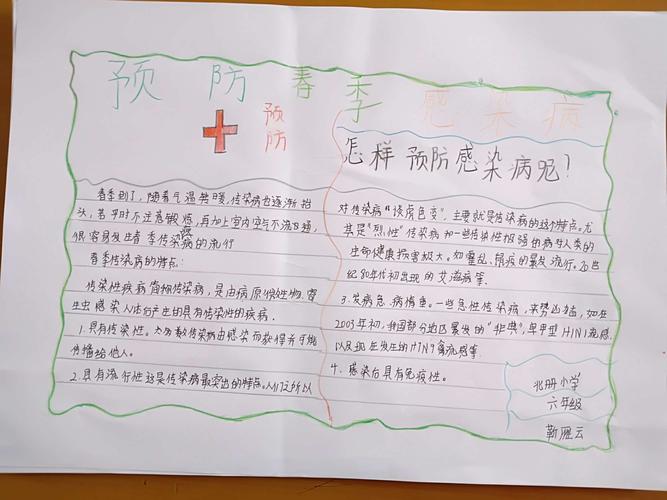 预防春季感染病
预防
春季到了,随着气温转暖,传染病也逐渐抬
头,若平时不注意锻炼,再加上室内空气不流通,
很容易发生春季传染病的流行
春季传染病的特点:
传染性疾病简称传染病,是由病原微生物、寄
生虫感染人体后产生的具有传染性的疾病.
1.具有传染性。大多数传染病由感染而获得并可能
传播给他人。
2.具有流行性这是传染病最突出的特点。人们之所以
怎样预防感染病呢?
对传染病“谈虎色变”,主要就是传染病的这个特点。尤
其是“烈性”传染病和一些传染性极强的病与人类的
生命健康损害极大。如霍乱、鼠疫的暴发流行。20世
纪80年代初出现的艾滋病等.
3.发病急.病情重。一些急性传染病,来势凶猛,如在
2003年初,我国部分地区暴发的“非典”,与甲型H1N1流感
以及现在发生的H7N9禽流感等.
4.感染后具有免疫性。
北册小学
六年级
靳雁云